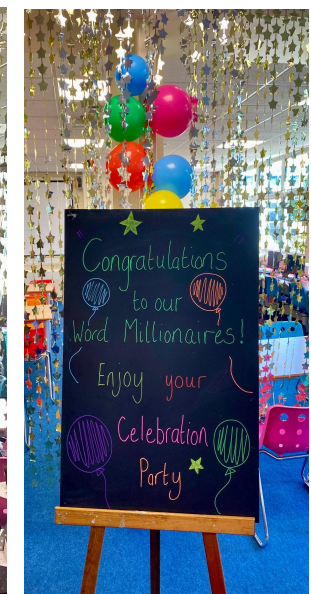 Congratulations
to our
Word Millionaires!
Enjoy your
Celebration
Party